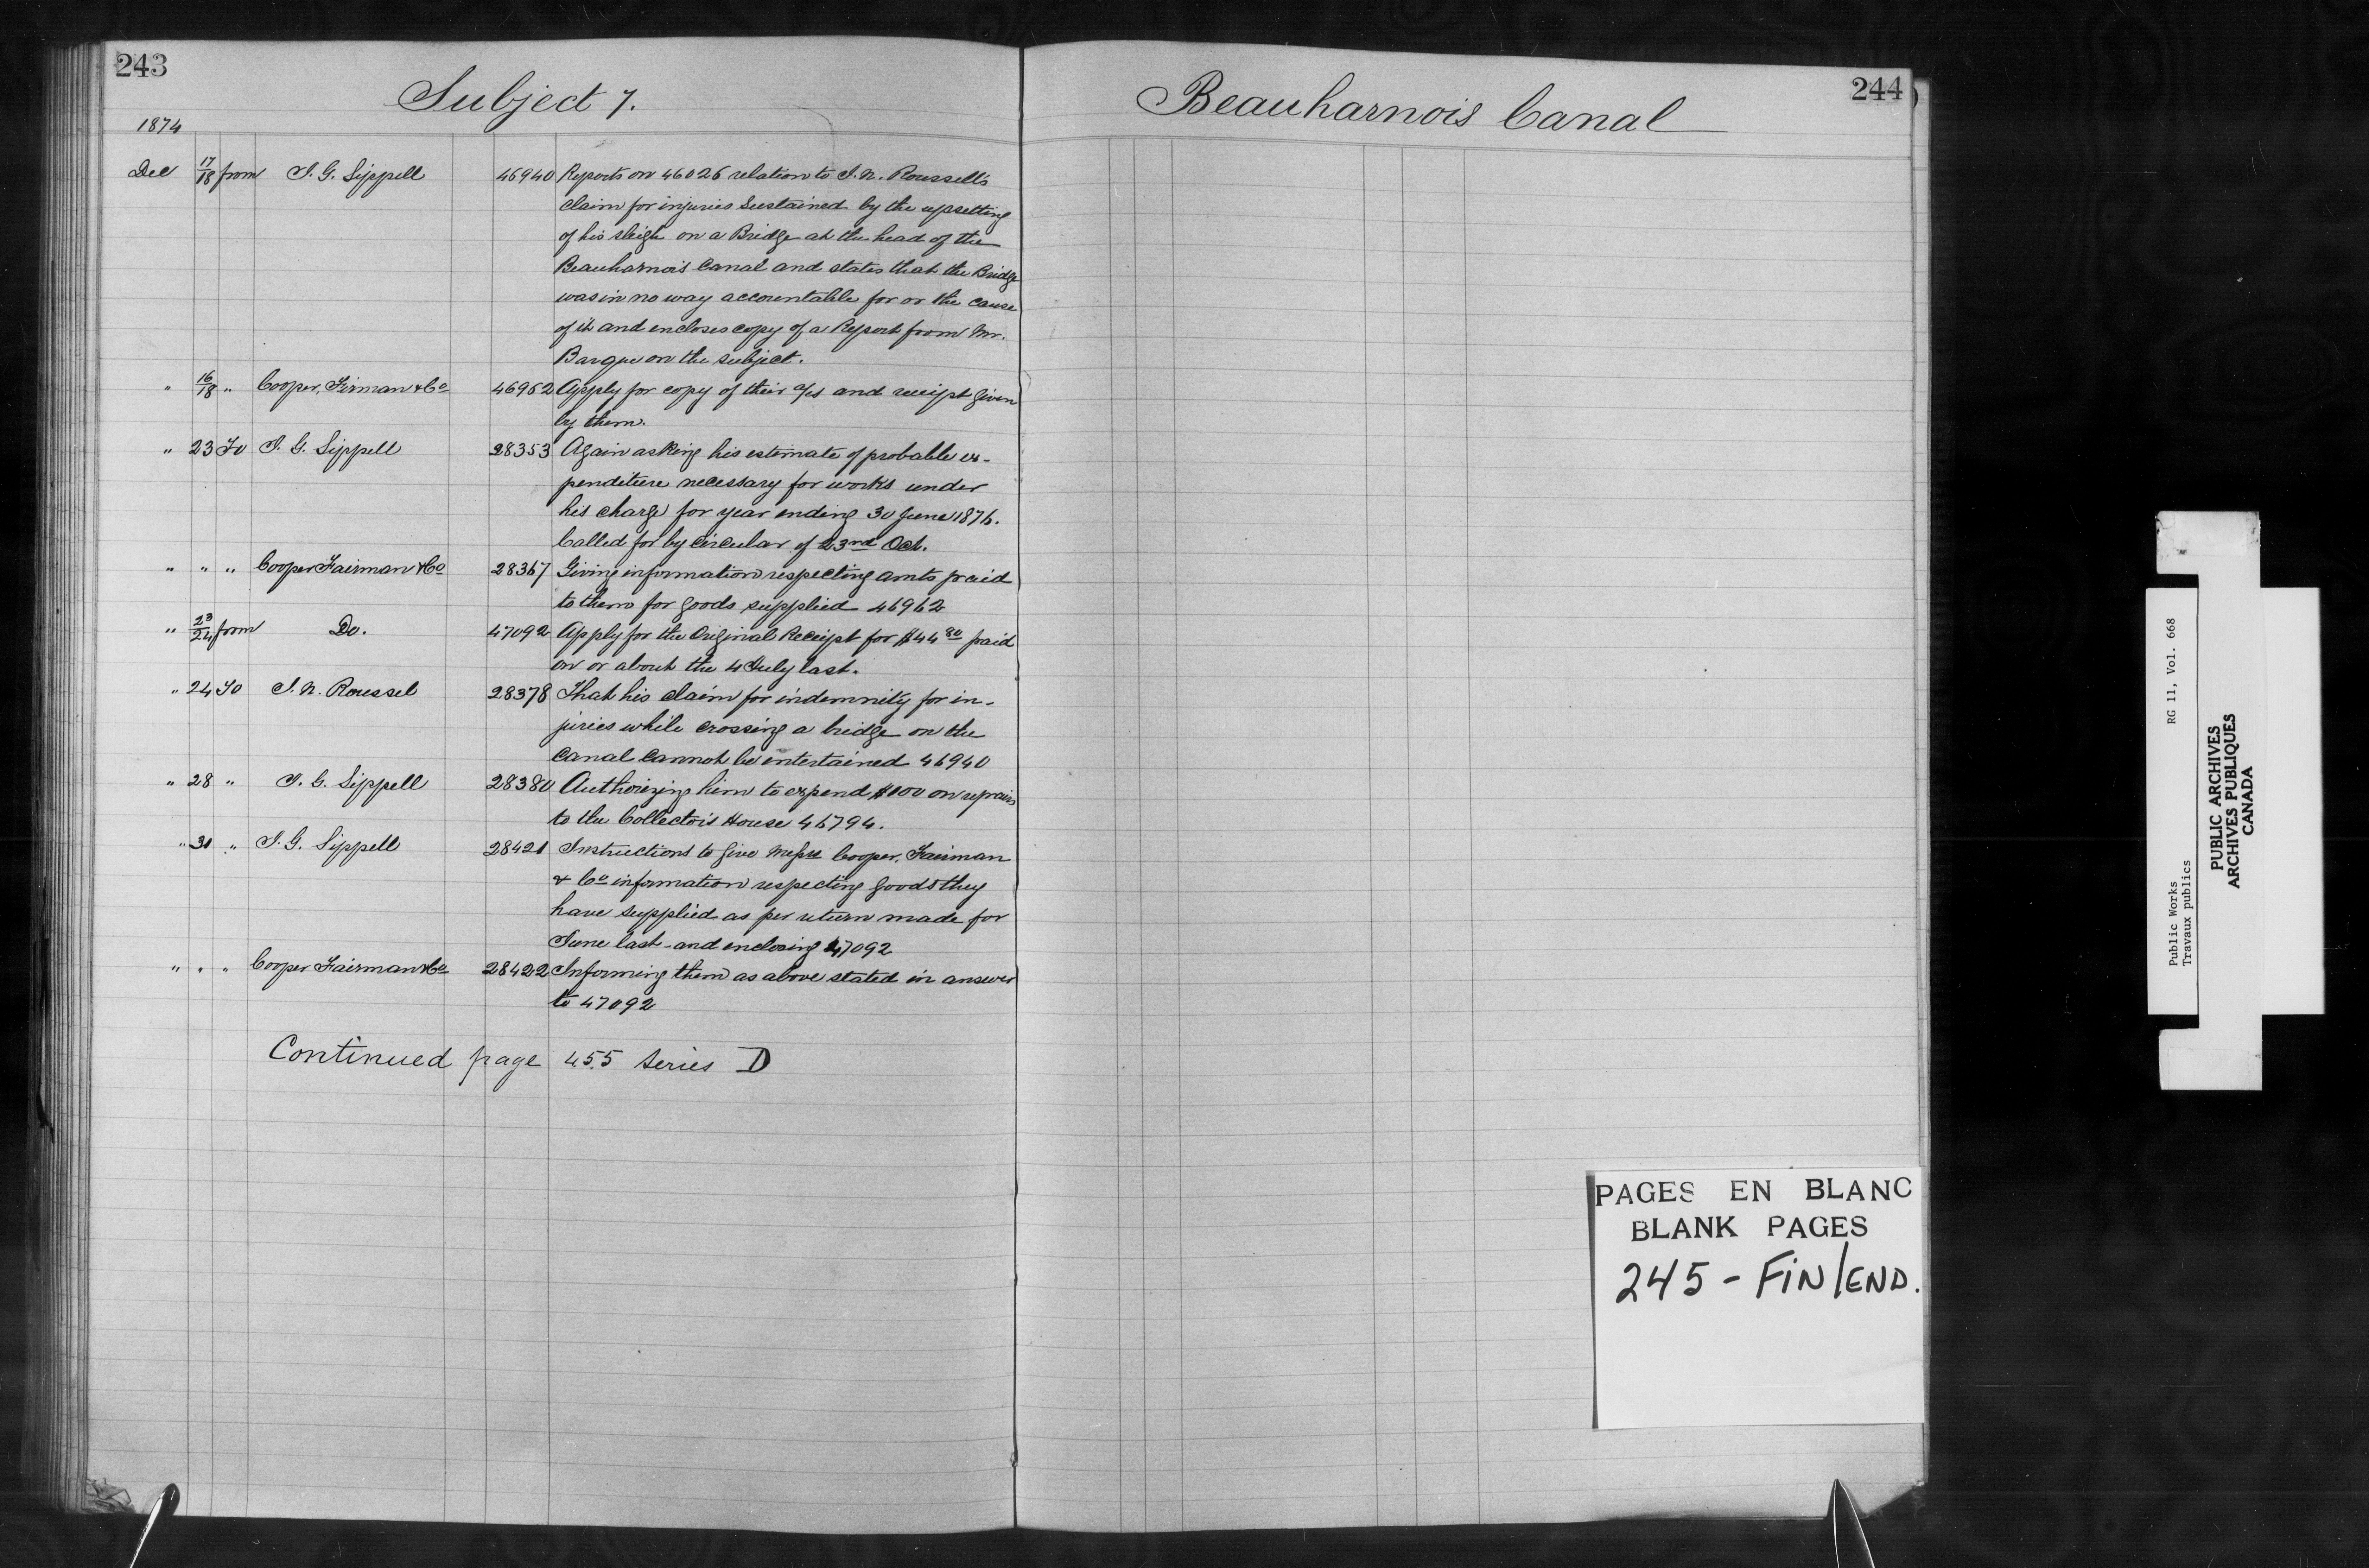 243
Subject 7.
1874
Dec 17/18 from J. G. Sippell 46940 Reports on 46026 relation to J. N. Roussell's
claim for injuries sustained by the upsetting
of his sleigh on a Bridge at the head of the
Beauharnois Canal and states that the Bridge
was in no way accountable for or the cause
of it and encloses copy of a Report from Mr.
on the subject.
" 16/18 " Cooper, Firman & Co 46962 Apply for copy of their a/s and receipt given
by them.
" 23 To J. G. Sippell 28353 Again asking his estimate of probable ex-
penditure necessary for works under
his charge for year ending 30 June 1876.
Called for by circular of 23rd Oct.
" " " Cooper Fairman & Co 28367 Giving information respecting amts paid
to them for goods supplied 46962
" 23/24 from Do. 47092 Apply for the Original Receipt for $44 80 paid
on or about the 4 July last.
" 24 To J. N. Roussel 28378 That his claim for indemnity for in-
juries while crossing a bridge on the
Canal cannot be entertained 46940
" 28 " J. G. Sippell 28380 Authorizing him to expend $100 on repairs
to the Collector's House 46794.
" 30 " J. G. Sippell 28421 Instructions to give Messrs Cooper, Fairman
& Co information respecting goods they
have supplied as per return made for
June last - and enclosing 47092
" " " Cooper Fairman & Co 28422 Informing them as above stated in answer
to 47092
Continued page 455 Series D
244
Beauharnois Canal
PAGES EN BLANC
BLANK PAGES
245 - FIN/END.
Public Works RG 11, Vol. 668
Travaux publics
PUBLIC ARCHIVES
ARCHIVES PUBLIQUES
CANADA